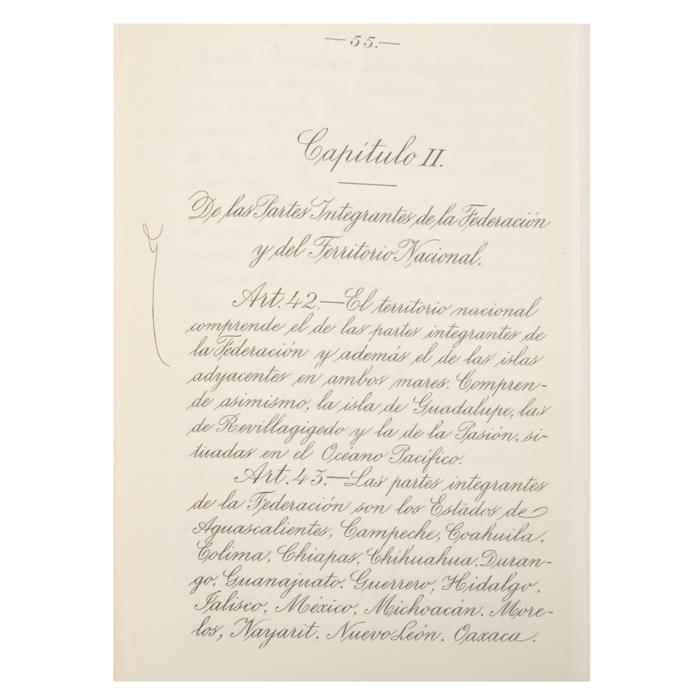 —55.—
Capítulo II.
De las Partes Integrantes de la Federación
y del Territorio Nacional.
Art. 42.—El territorio nacional
comprende el de las partes integrantes de
la Federación y además el de las islas
adyacentes en ambos mares. Compren-
de asimismo, la isla de Guadalupe, las
de Revillagigedo y la de la Pasión, si-
tuadas en el Océano Pacífico.
Art. 43.—Las partes integrantes
de la Federación son los Estados de
Aguascalientes, Campeche, Coahuila,
Colima, Chiapas, Chihuahua, Duran-
go, Guanajuato, Guerrero, Hidalgo,
Jalisco, México, Michoacán, More-
los, Nayarit, Nuevo León, Oaxaca,